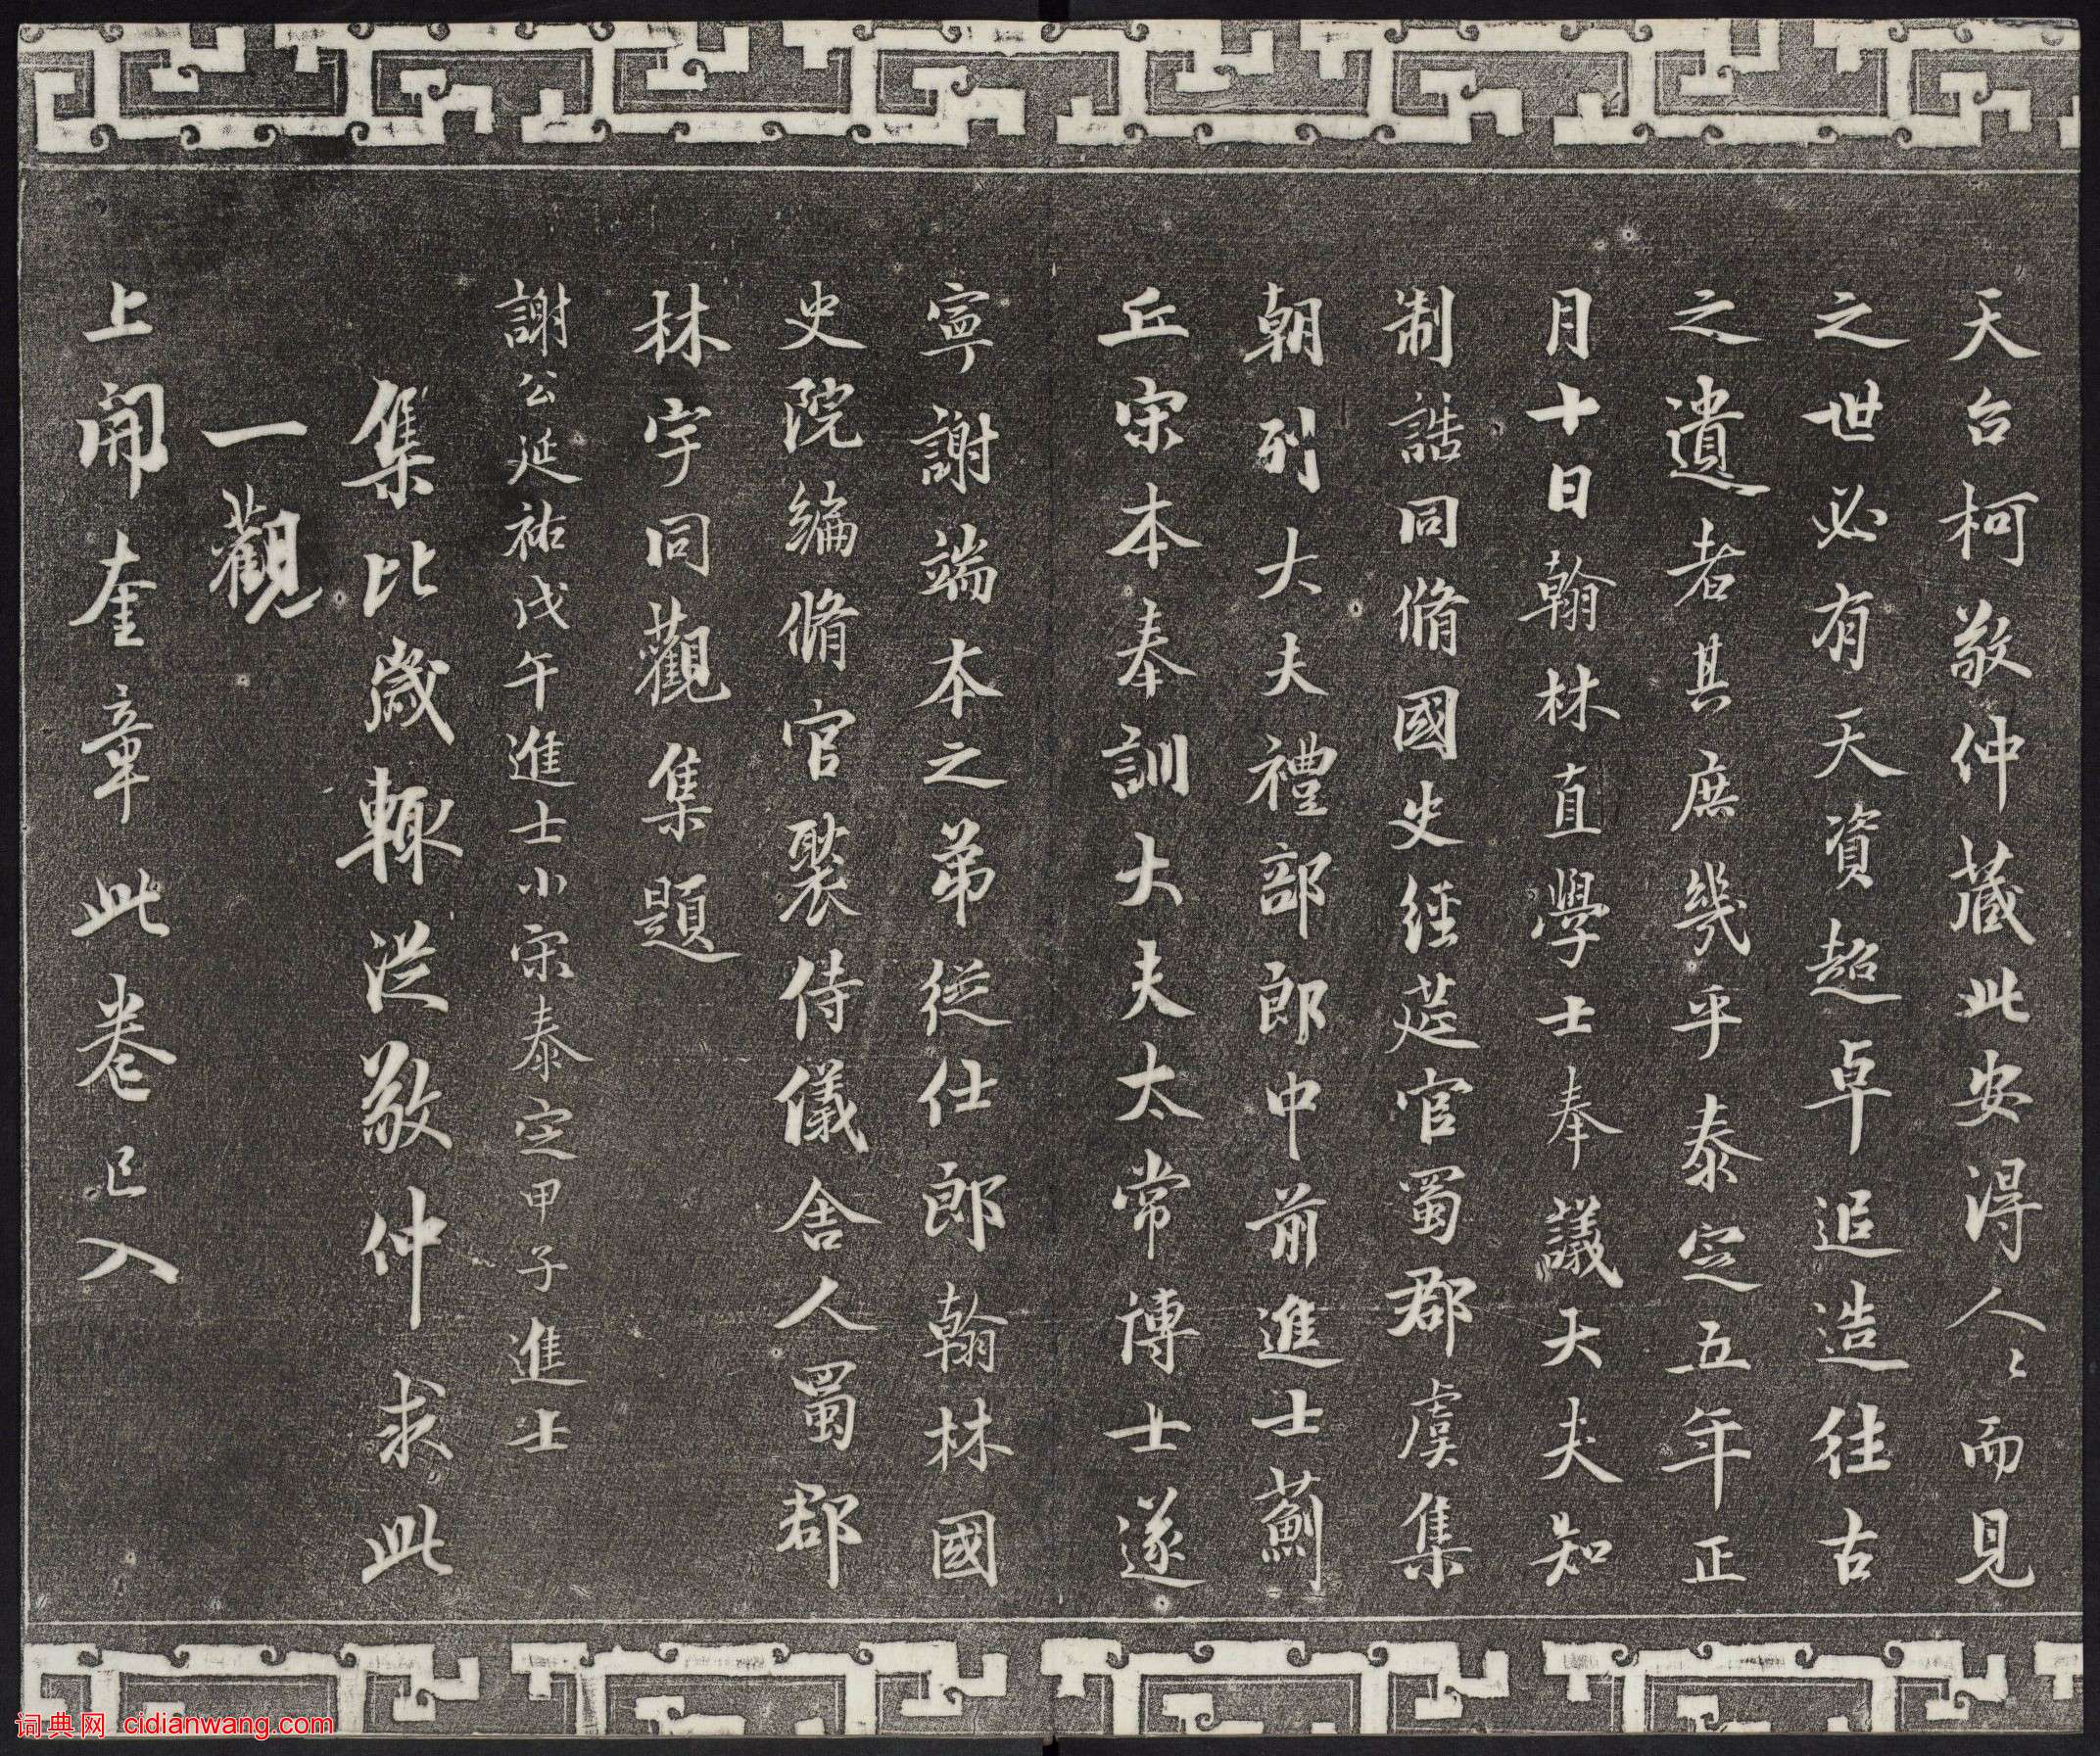 天台柯敬仲藏此安得人〻而見
之世必有天資超卓追造往古
之遺者其庶幾乎泰定五年正
月十日翰林直學士奉議大夫知
制誥同脩國史經筵官蜀郡虞集
朝列大夫禮部郎中前進士薊
丘宋本奉訓大夫太常博士遂
寧謝端本之弟從仕郎翰林國
史院編脩官褧侍儀舍人蜀郡
林宇同觀集題
謝公延祐戊午進士小宋泰定甲子進士
集比歲輒從敬仲求此
一觀
上開奎章此卷已入
词典网 cidianwang.com